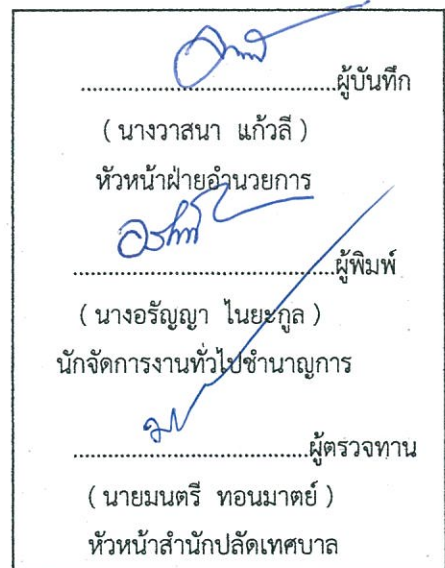 ................................ผู้บันทึก
( นางวาสนา แก้วลี )
หัวหน้าฝ่ายอำนวยการ
................................ผู้พิมพ์
( นางอรัญญา ไนยะกูล )
นักจัดการงานทั่วไปชำนาญการ
................................ผู้ตรวจทาน
( นายมนตรี ทอนมาตย์ )
หัวหน้าสำนักปลัดเทศบาล